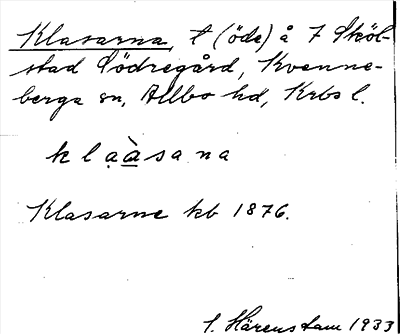 Klasarna, t (öde) å 7 Sköl-
stad Södregård, Kvenne-
berga sn, Allbo hd, Krbs l.
k l ạ à s a n a
Klasarne kb 1876.
S. Härenstam 1933